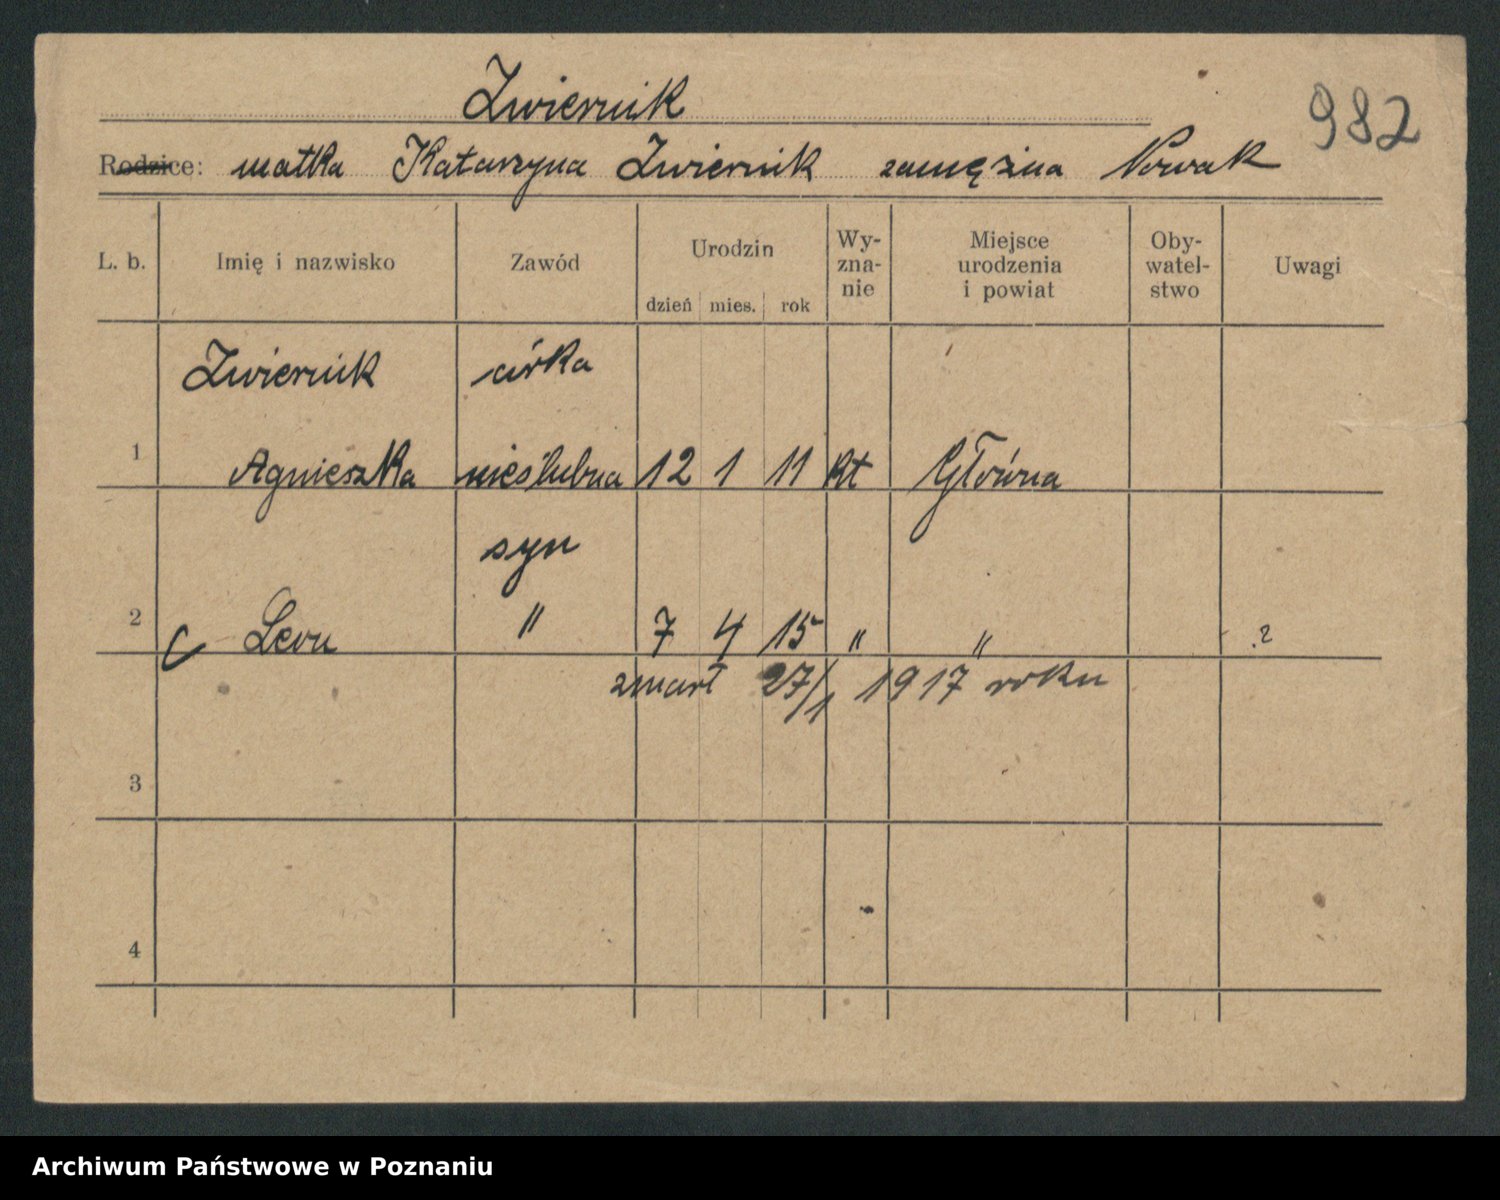 Zwiernik
982
Rodzice: matka Katarzyna Zwiernik zamężna Nowak
L. b. Imię i nazwisko Zawód Urodzin dzień mies. rok Wy-zna-nie Miejsce urodzenia i powiat Oby-watel-stwo Uwagi
Zwiernik córka
1 Agnieszka nieślubna 12 1 11 kt Główna
syn
2 Leon " 7 4 15 " " ?
zmarł 27/1 1917 roku
3
4
Archiwum Państwowe w Poznaniu